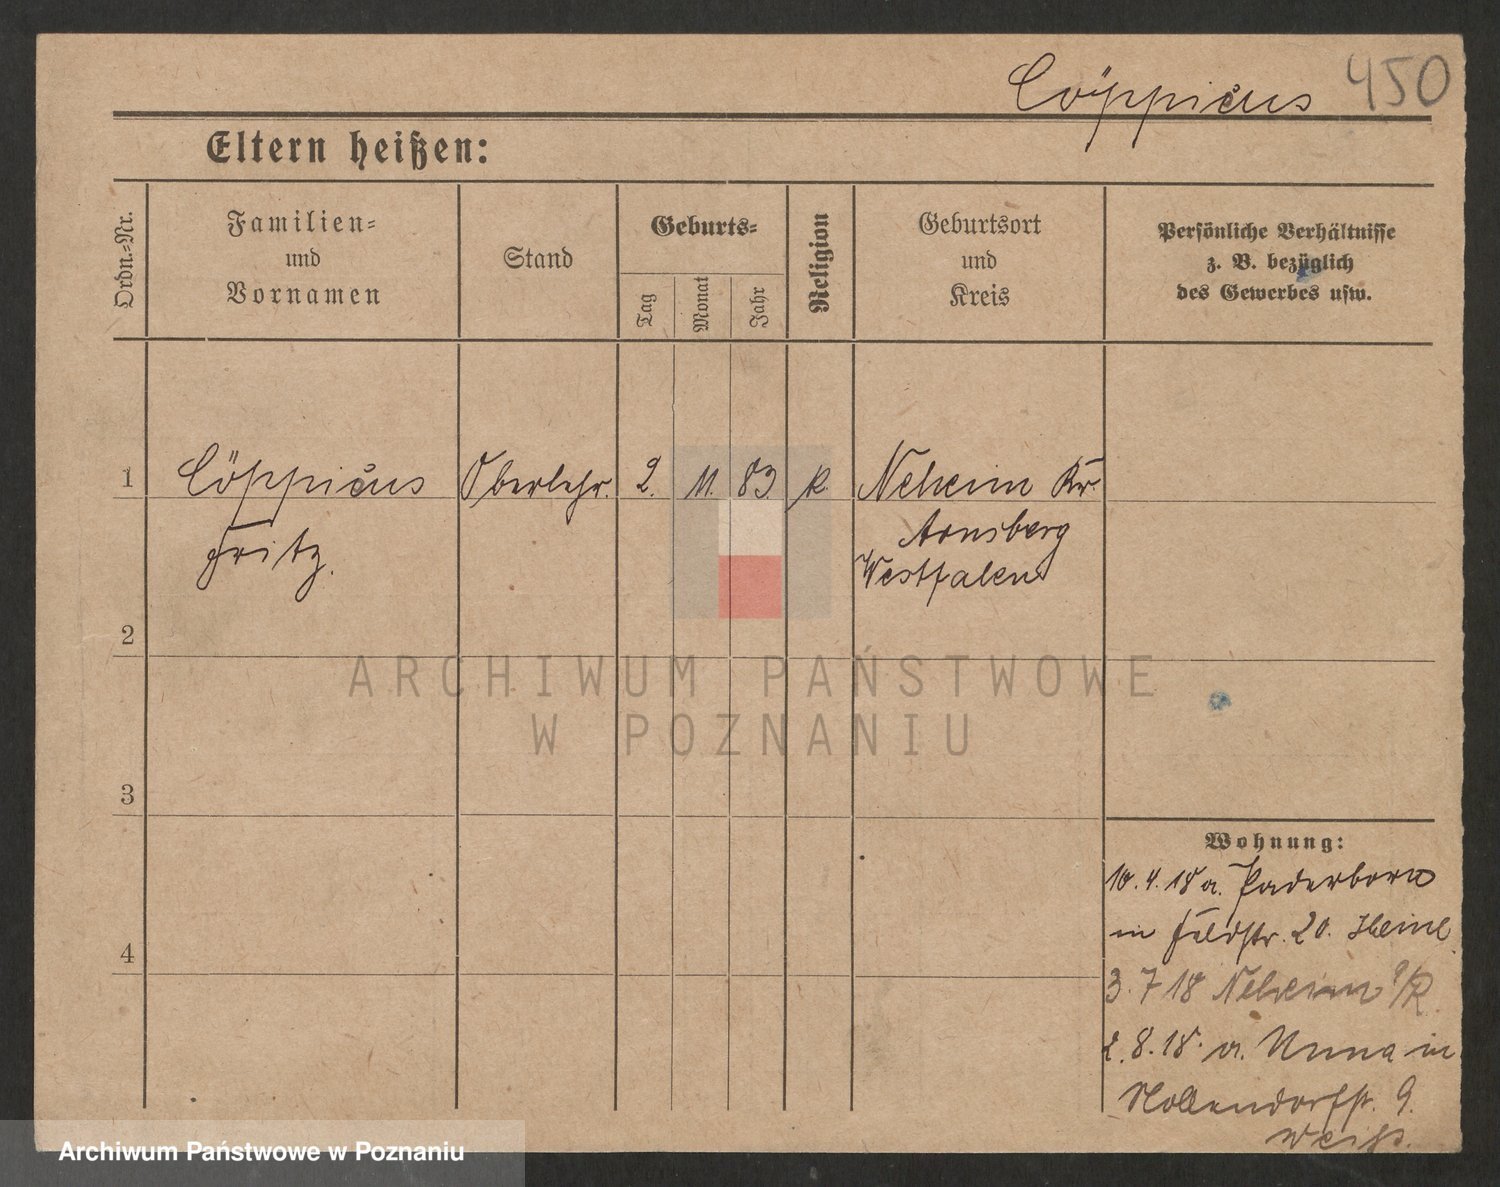 Cöppicus 450
Eltern heißen:
Ordn.-Nr.
Familien-
und
Vornamen
Stand
Geburts-
Tag
Monat
Jahr
Religion
Geburtsort
und
Kreis
Persönliche Verhältnisse
z. B. bezüglich
des Gewerbes usw.
1 Cöppicus Oberlehr. 2. 11. 83 k. Neheim Kr.
Fritz. Arnsberg
Westfalen
2
ARCHIWUM PAŃSTWOWE
W POZNANIU
3
Wohnung:
10.4.18 a. Paderborn
in Feldstr. 20.
4
3.7 18 Neheim /R
2.8.18. a. Unna in
Nollendorfstr. 9.
Weiß.
Archiwum Państwowe w Poznaniu